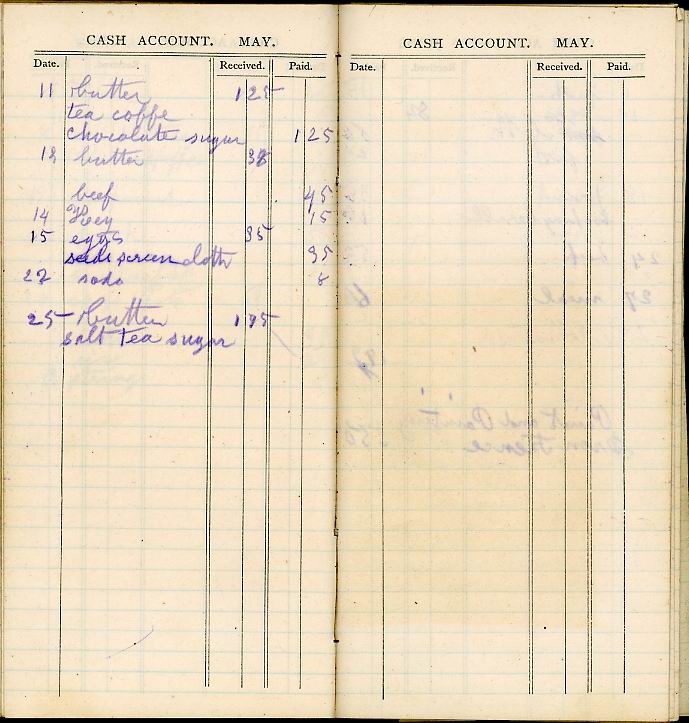 CASH ACCOUNT. MAY.
Date. Received. Paid.
11 butter 1 25
tea coffe
chocolate sugar 1 25
butter
beef 45
14 15
15 eggs 35
screen cloth 35
soda 8
25 butter 1 95
salt tea sugar
CASH ACCOUNT. MAY.
Date. Received. Paid.